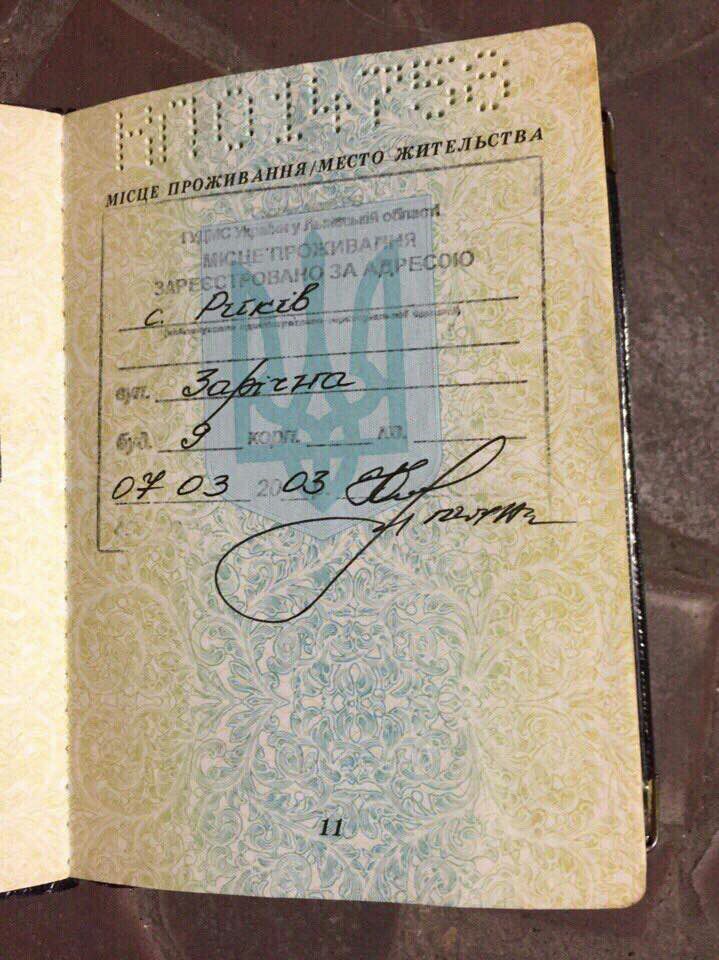 МІСЦЕ ПРОЖИВАННЯ/МЕСТО ЖИТЕЛЬСТВА
України у Львівській області
МІСЦЕ ПРОЖИВАННЯ
ЗАРЕЄСТРОВАНО ЗА АДРЕСОЮ
с. Риків
вул. Зарічна
буд. 9 корп. кв.
07 03 2003
11